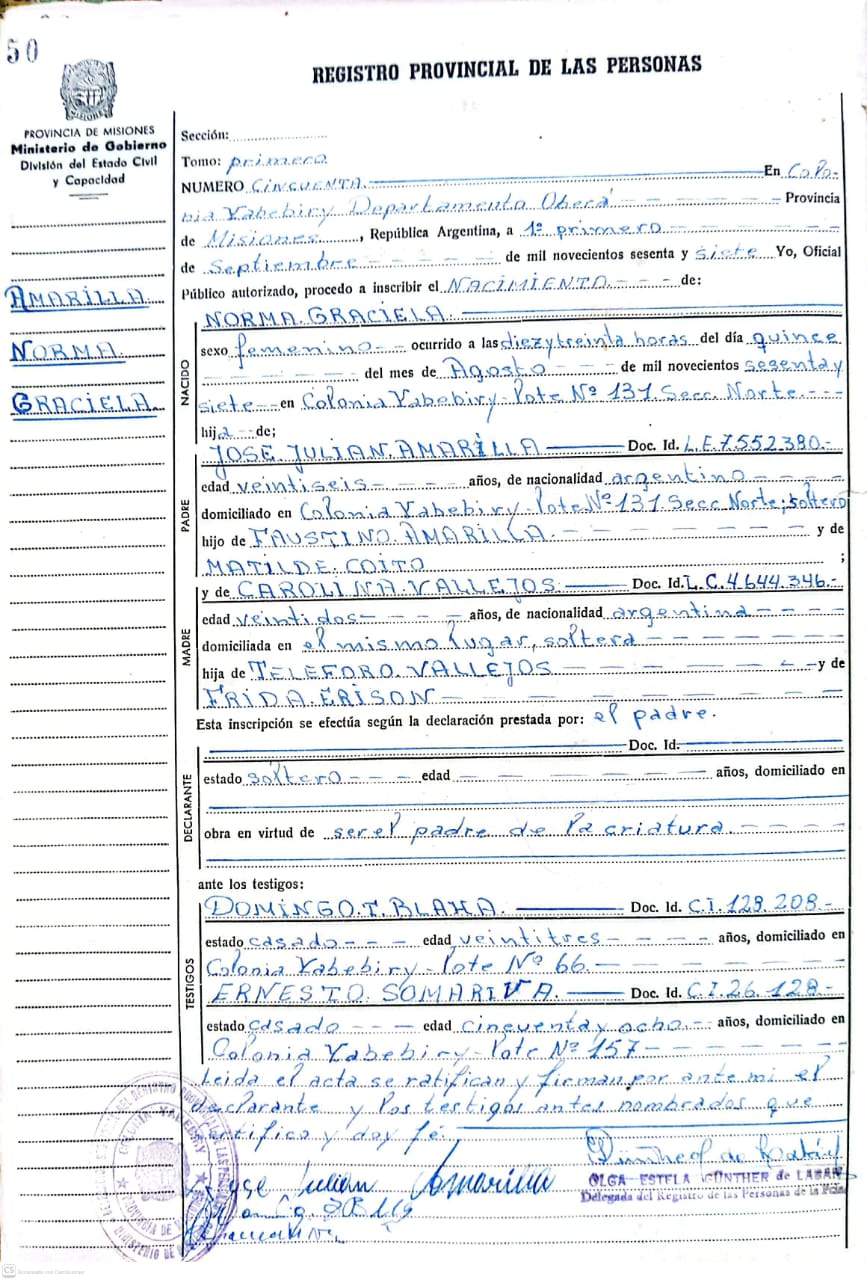 50
REGISTRO PROVINCIAL DE LAS PERSONAS
PROVINCIA DE MISIONES
Ministerio de Gobierno
División del Estado Civil
y Capacidad
AMARILLA
NORMA
GRACIELA
Sección:
Tomo: primero
NUMERO CINCUENTA. En Colo-
nia Yabebiry Departamento Oberá Provincia
de Misiones, República Argentina, a 1º primero
de Septiembre de mil novecientos sesenta y siete Yo, Oficial
Público autorizado, procedo a inscribir el NACIMIENTO de:
NACIDO
NORMA GRACIELA.
sexo femenino ocurrido a las diez y treinta horas del día quince
del mes de Agosto de mil novecientos sesenta y
siete en Colonia Yabebiry - Lote Nº 131. Secc. Norte.
hija de;
PADRE
JOSE JULIAN AMARILLA Doc. Id. L.E. 7.552.380.-
edad veintiseis años, de nacionalidad argentino
domiciliado en Colonia Yabebiry - Lote Nº 131 Secc Norte; soltero
hijo de FAUSTINO AMARILLA. y de
MATILDE COITO ;
MADRE
y de CAROLINA VALLEJOS. Doc. Id. L.C. 4.644.346.-
edad veintidos años, de nacionalidad argentina
domiciliada en el mismo lugar, soltera
hija de TELEFORO VALLEJOS y de
FRIDA ERISON
Esta inscripción se efectúa según la declaración prestada por: el padre.
DECLARANTE
Doc. Id.
estado soltero edad años, domiciliado en
obra en virtud de ser el padre de la criatura.
ante los testigos:
TESTIGOS
DOMINGO T. BLAHA. Doc. Id. C.I. 128.208.-
estado casado edad veintitres años, domiciliado en
Colonia Yabebiry - Lote Nº 66.
ERNESTO SOMARIVA. Doc. Id. C.I. 26.128.-
estado casado edad cincuenta y ocho años, domiciliado en
Colonia Yabebiry - Lote Nº 157
Leida el acta se ratifican y firman por ante mi el
declarante y los testigos antes nombrados que
certifico y doy fé.
Jose Julian Amarilla
OLGA ESTELA GÜNTHER de LABAN
Delegada del Registro de las Personas de la
CS Escaneado con CamScanner